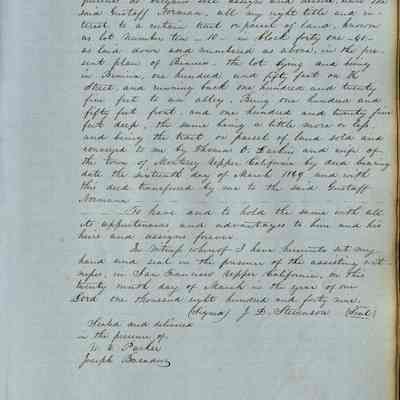 said Gustaff Normann, all my right title and in-
terest to a certain tract or parcel of land, known
as lot number ten - 10 - in block forty one - 41 -
as laid down and numbered as above, in the pre-
sent plan of Benicia - the lot lying and being
in Benicia, one hundred and fifty feet on
Street, and running back one hundred and twenty
five feet to an alley. Being one hundred and
fifty feet front, and one hundred and twenty five
feet deep, the same being a little more or less
and being the tract or parcel of land sold and
conveyed to me by Thomas O. Larkin and wife of
the town of Monterey Upper California by deed bearing
date the sixteenth day of March 1849, and with
this deed transferred by me to the said Gustaff
Normann
To have and to hold the same with all
its appurtenances and advantages to him and his
heirs and assigns forever
In witness whereof I have hereunto set my
hand and seal in the presence of the assisting wit-
nesses, in San Francisco Upper California, on this
twenty ninth day of March in the year of our
Lord one thousand eight hundred and forty nine.
(Signed) J. D. Stevenson (Seal)
Sealed and delivered
in the presence of
W. C. Parker
Joseph